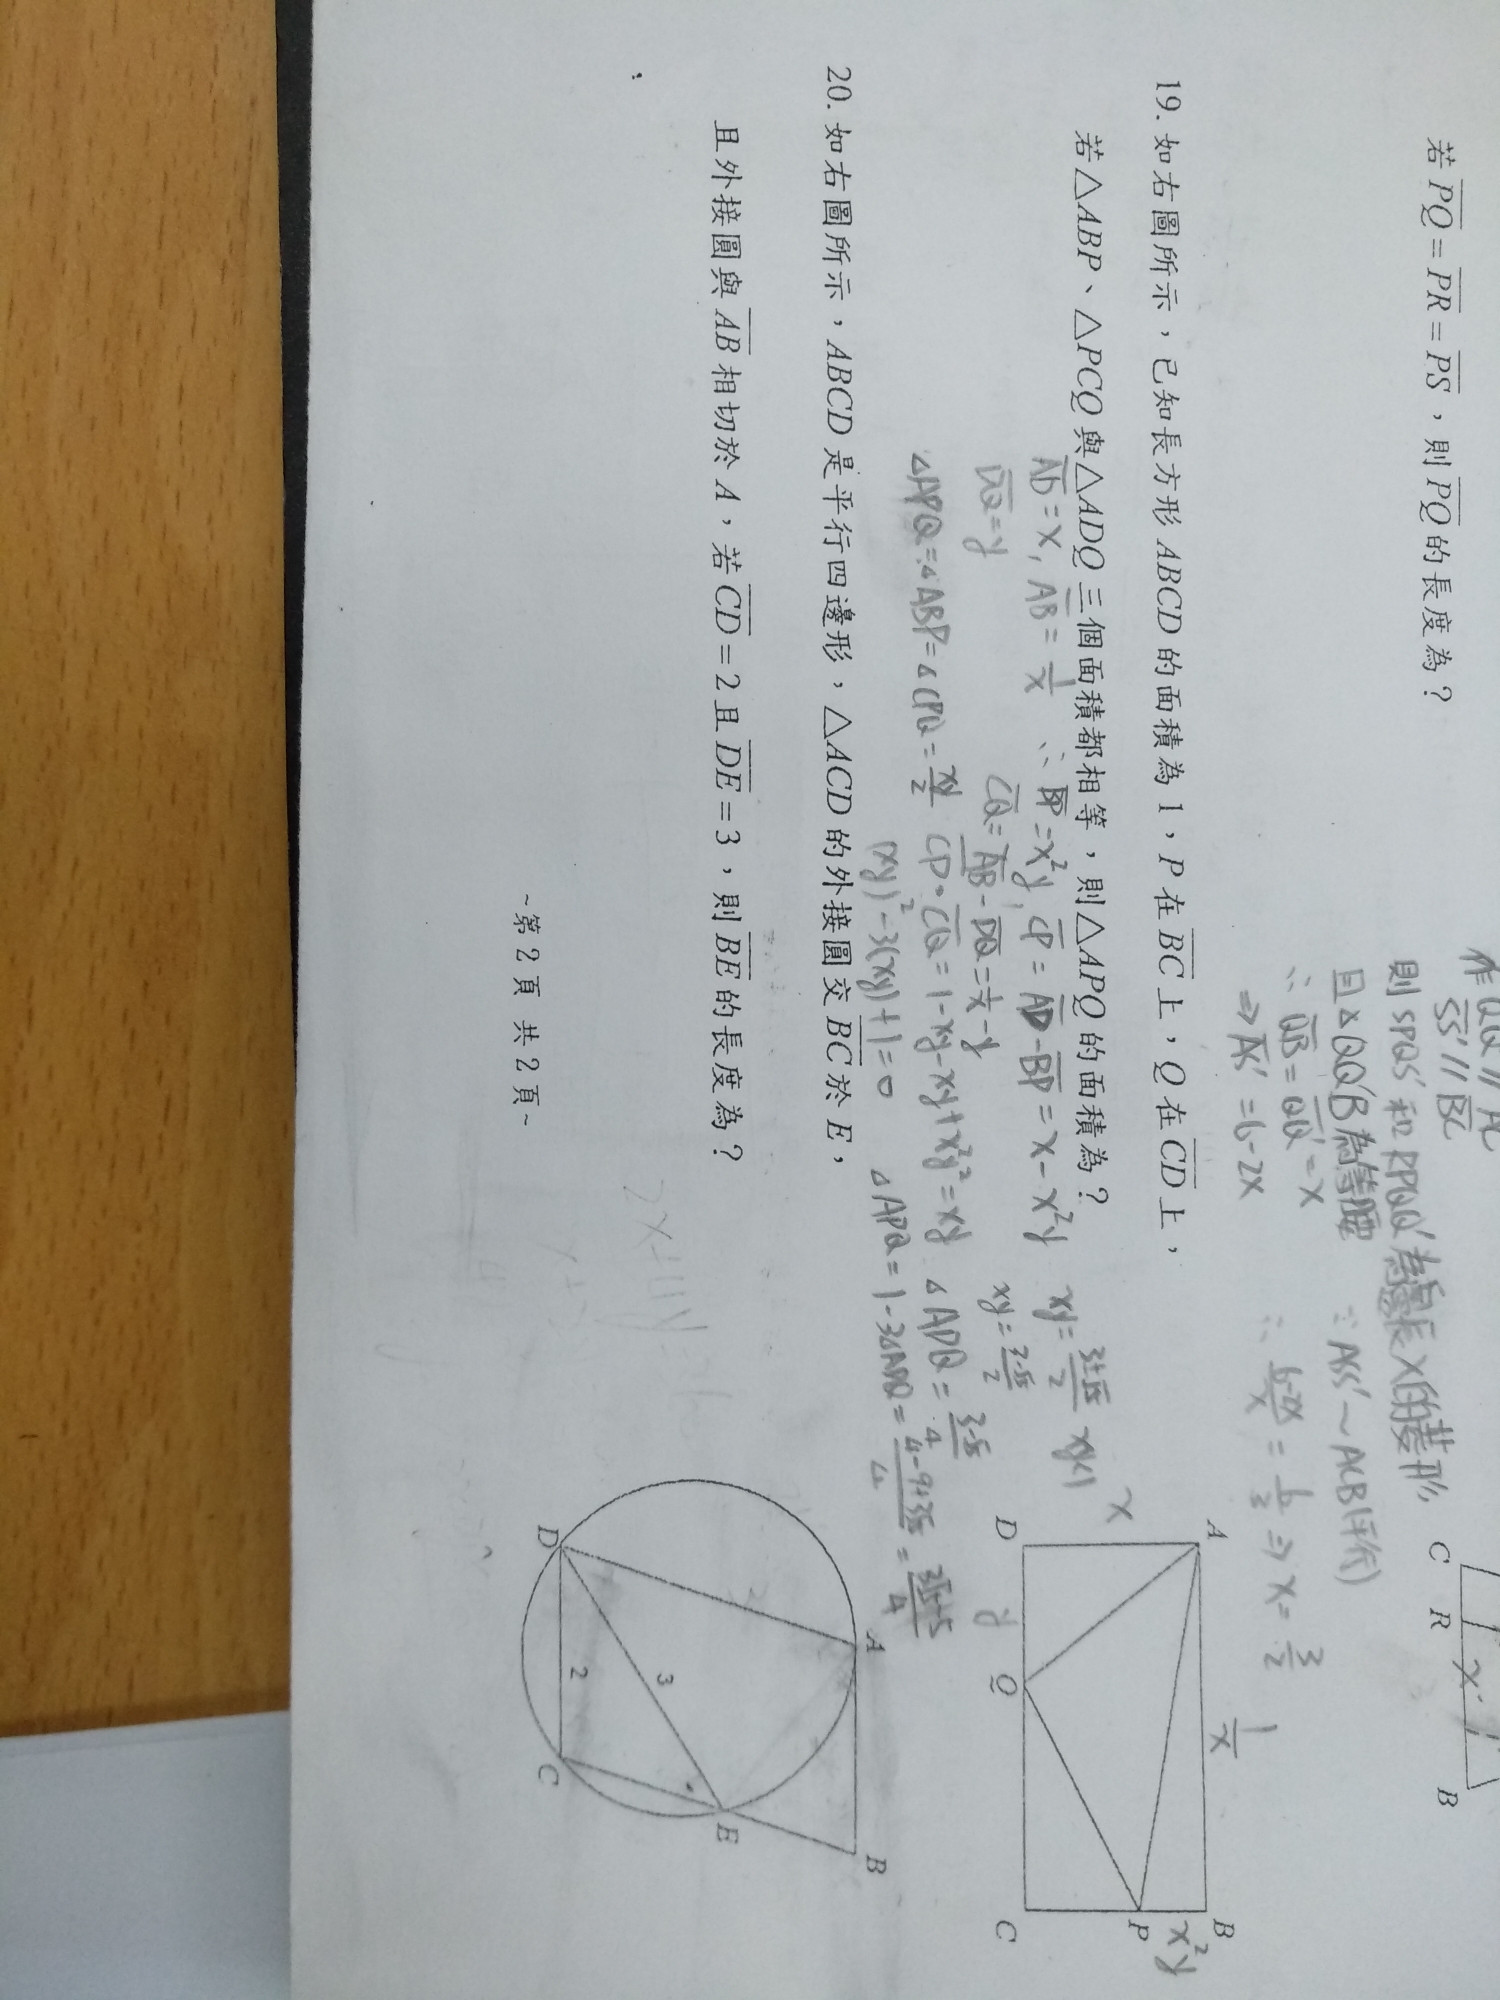 若PQ=PR=PS，則PQ的長度為？
作QQ'//AC
SS'//BC
則SPQS'和RPQQ'為邊長X的菱形
且△QQ'B為等腰
∴QB=QQ'=x
⇒AS'=6-2x
∴ASS'~ACB(平行)
∴(6-2x)/x=6/3⇒x=3/2
C R B
x
19. 如右圖所示，已知長方形ABCD的面積為1，P在BC上，Q在CD上，
若△ABP、△PCQ與△ADQ三個面積都相等，則△APQ的面積為？
AD=x, AB=1/x ∴BP=x²y, CP=AD-BP=x-x²y
DQ=y CQ=AB-DQ=1/x-y
△APQ=△ABP=△CPQ=xy/2 CP·CQ=1-xy-xy+x²y²=xy
(xy)²-3(xy)+1=0
xy=(3±√5)/2 xy<1
xy=(3-√5)/2
△ADQ=(3-√5)/4
△APQ=1-3△ADQ=(4-9+3√5)/4=(3√5+5)/4
A B
D Q C
P
x
y
1/x
x²y
20. 如右圖所示，ABCD是平行四邊形，△ACD的外接圓交BC於E，
且外接圓與AB相切於A，若CD=2且DE=3，則BE的長度為？
A B
D C
E
3
2
~第2頁 共2頁~